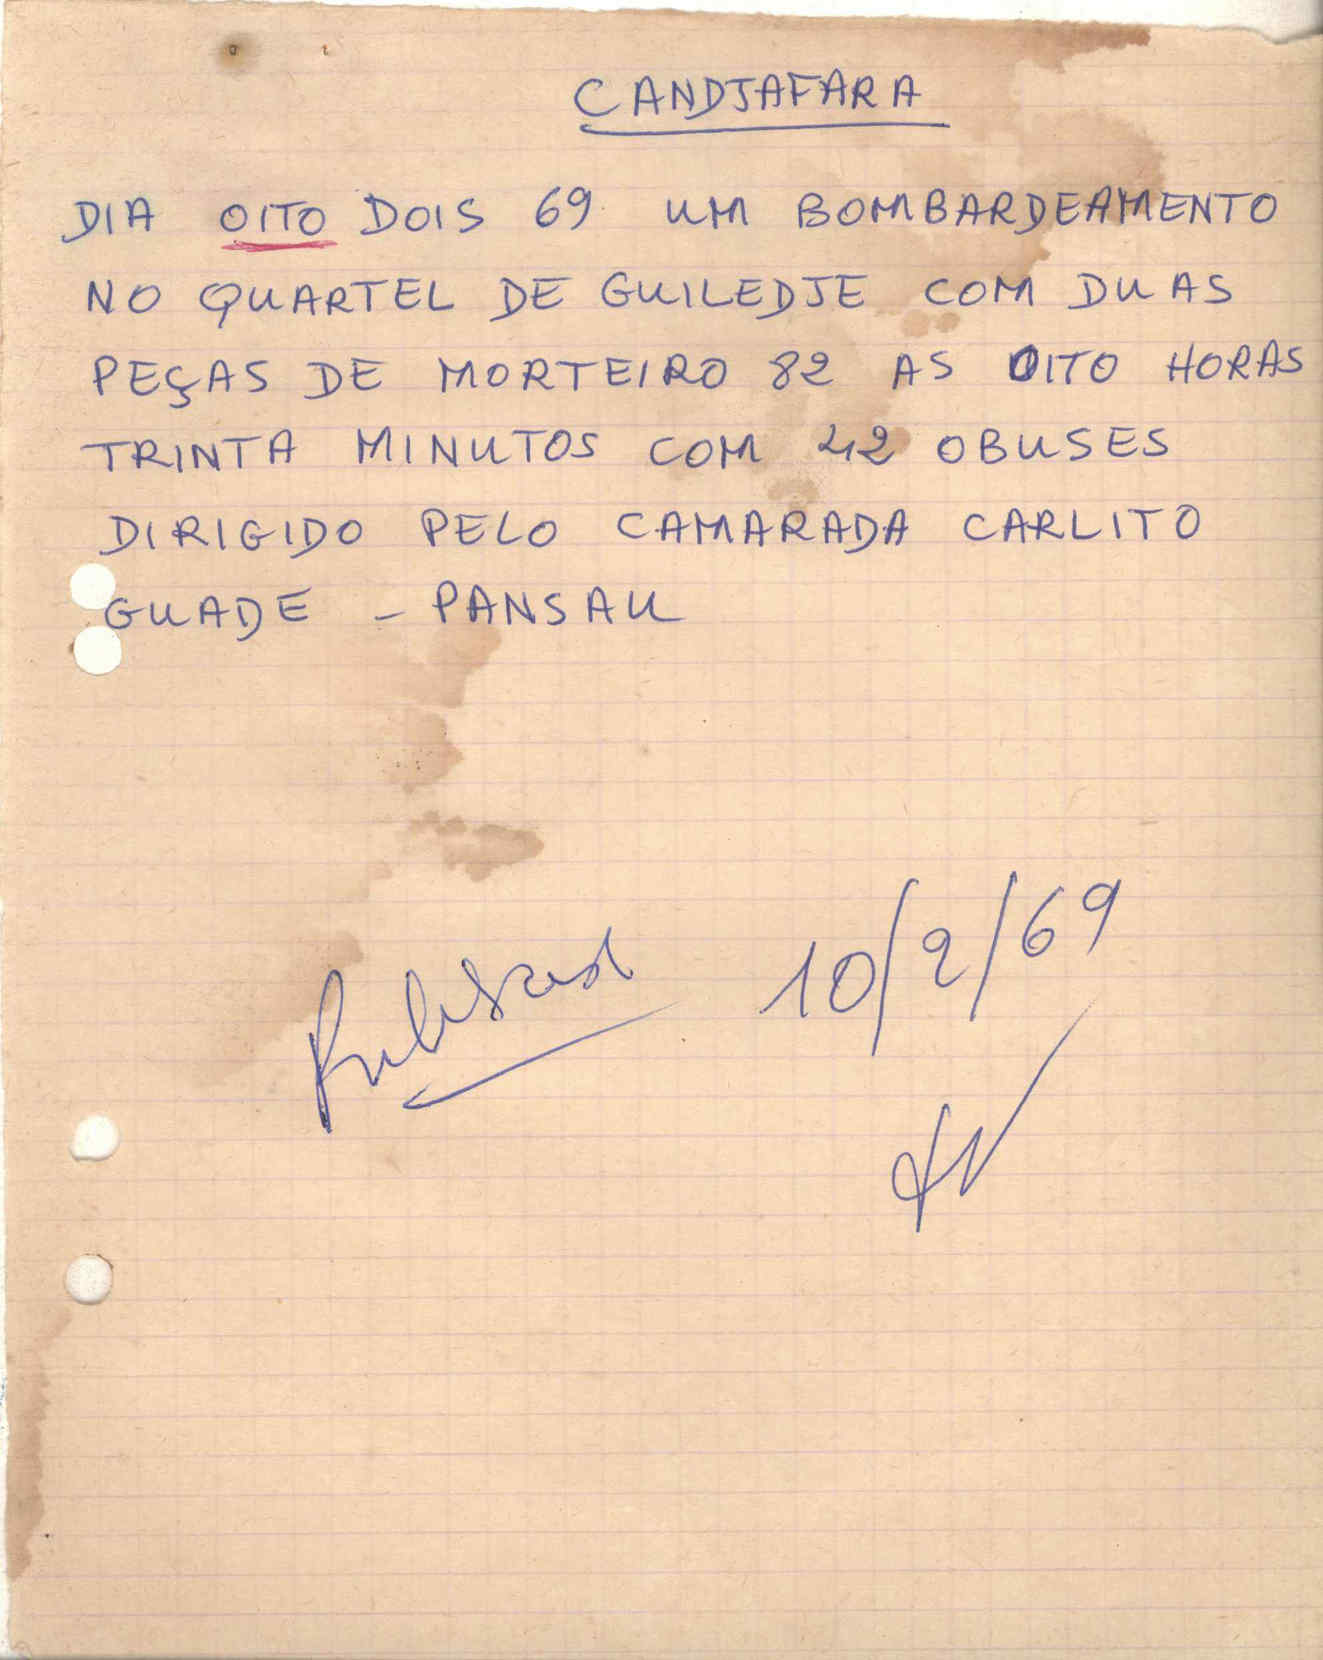 CANDJAFARA
DIA OITO DOIS 69 UM BOMBARDEAMENTO
NO QUARTEL DE GUILEDJE COM DUAS
PEÇAS DE MORTEIRO 82 AS OITO HORAS
TRINTA MINUTOS COM 42 OBUSES
DIRIGIDO PELO CAMARADA CARLITO
GUADE – PANSAU
10/2/69